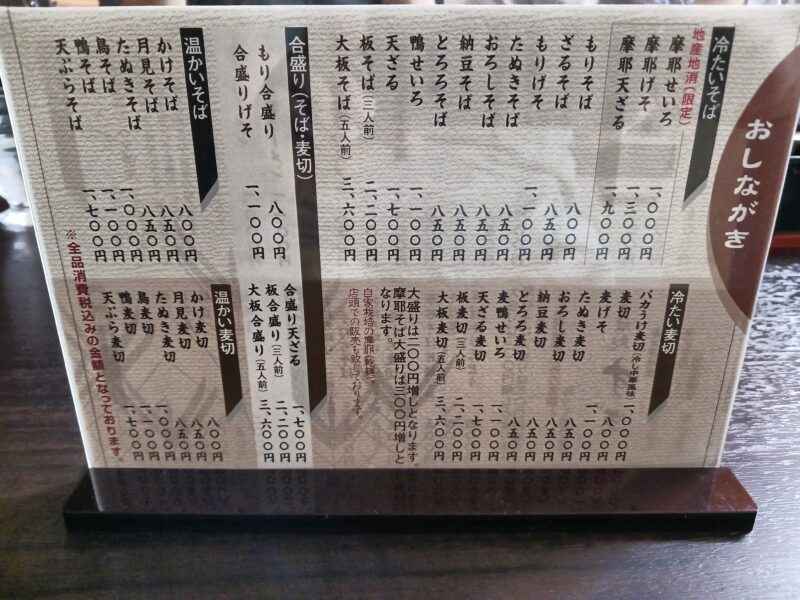 おしながき
冷たいそば
地産地消(限定)
摩耶せいろ 一、〇〇〇円
摩耶げそ 一、三〇〇円
摩耶天ざる 一、九〇〇円
もりそば 八〇〇円
ざるそば 八五〇円
もりげそ 一、一〇〇円
たぬきそば 八五〇円
おろしそば 八五〇円
納豆そば 八五〇円
とろろそば 八五〇円
鴨せいろ 一、一〇〇円
天ざる 一、七〇〇円
板そば(三人前) 二、二〇〇円
大板そば(五人前) 三、六〇〇円
合盛り(そば・麦切)
もり合盛り 八〇〇円
合盛りげそ 一、一〇〇円
温かいそば
かけそば 八〇〇円
月見そば 八五〇円
たぬきそば 八五〇円
鳥そば 一、〇〇〇円
鴨そば 一、一〇〇円
天ぷらそば 一、七〇〇円
冷たい麦切
バカうけ麦切(冷し中華風味) 一、〇〇〇円
麦切 八〇〇円
麦げそ 一、一〇〇円
たぬき麦切 八五〇円
おろし麦切 八五〇円
納豆麦切 八五〇円
とろろ麦切 八五〇円
麦鴨せいろ 一、一〇〇円
天ざる麦切 一、七〇〇円
板麦切(三人前) 二、二〇〇円
大板麦切(五人前) 三、六〇〇円
大盛りは二〇〇円増しとなります。
摩耶そば大盛りは三〇〇円増しと
なります。
店頭での販売も致しております。
合盛り天ざる 一、七〇〇円
板合盛り(三人前) 二、二〇〇円
大板合盛り(五人前) 三、六〇〇円
温かい麦切
かけ麦切 八〇〇円
月見麦切 八五〇円
たぬき麦切 八五〇円
鳥麦切 一、〇〇〇円
鴨麦切 一、一〇〇円
天ぷら麦切 一、七〇〇円
※全品消費税込みの金額となっております。